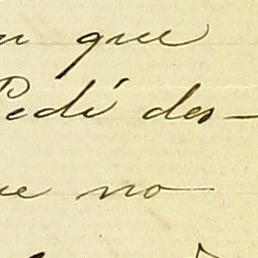 que
Pedí des-
no